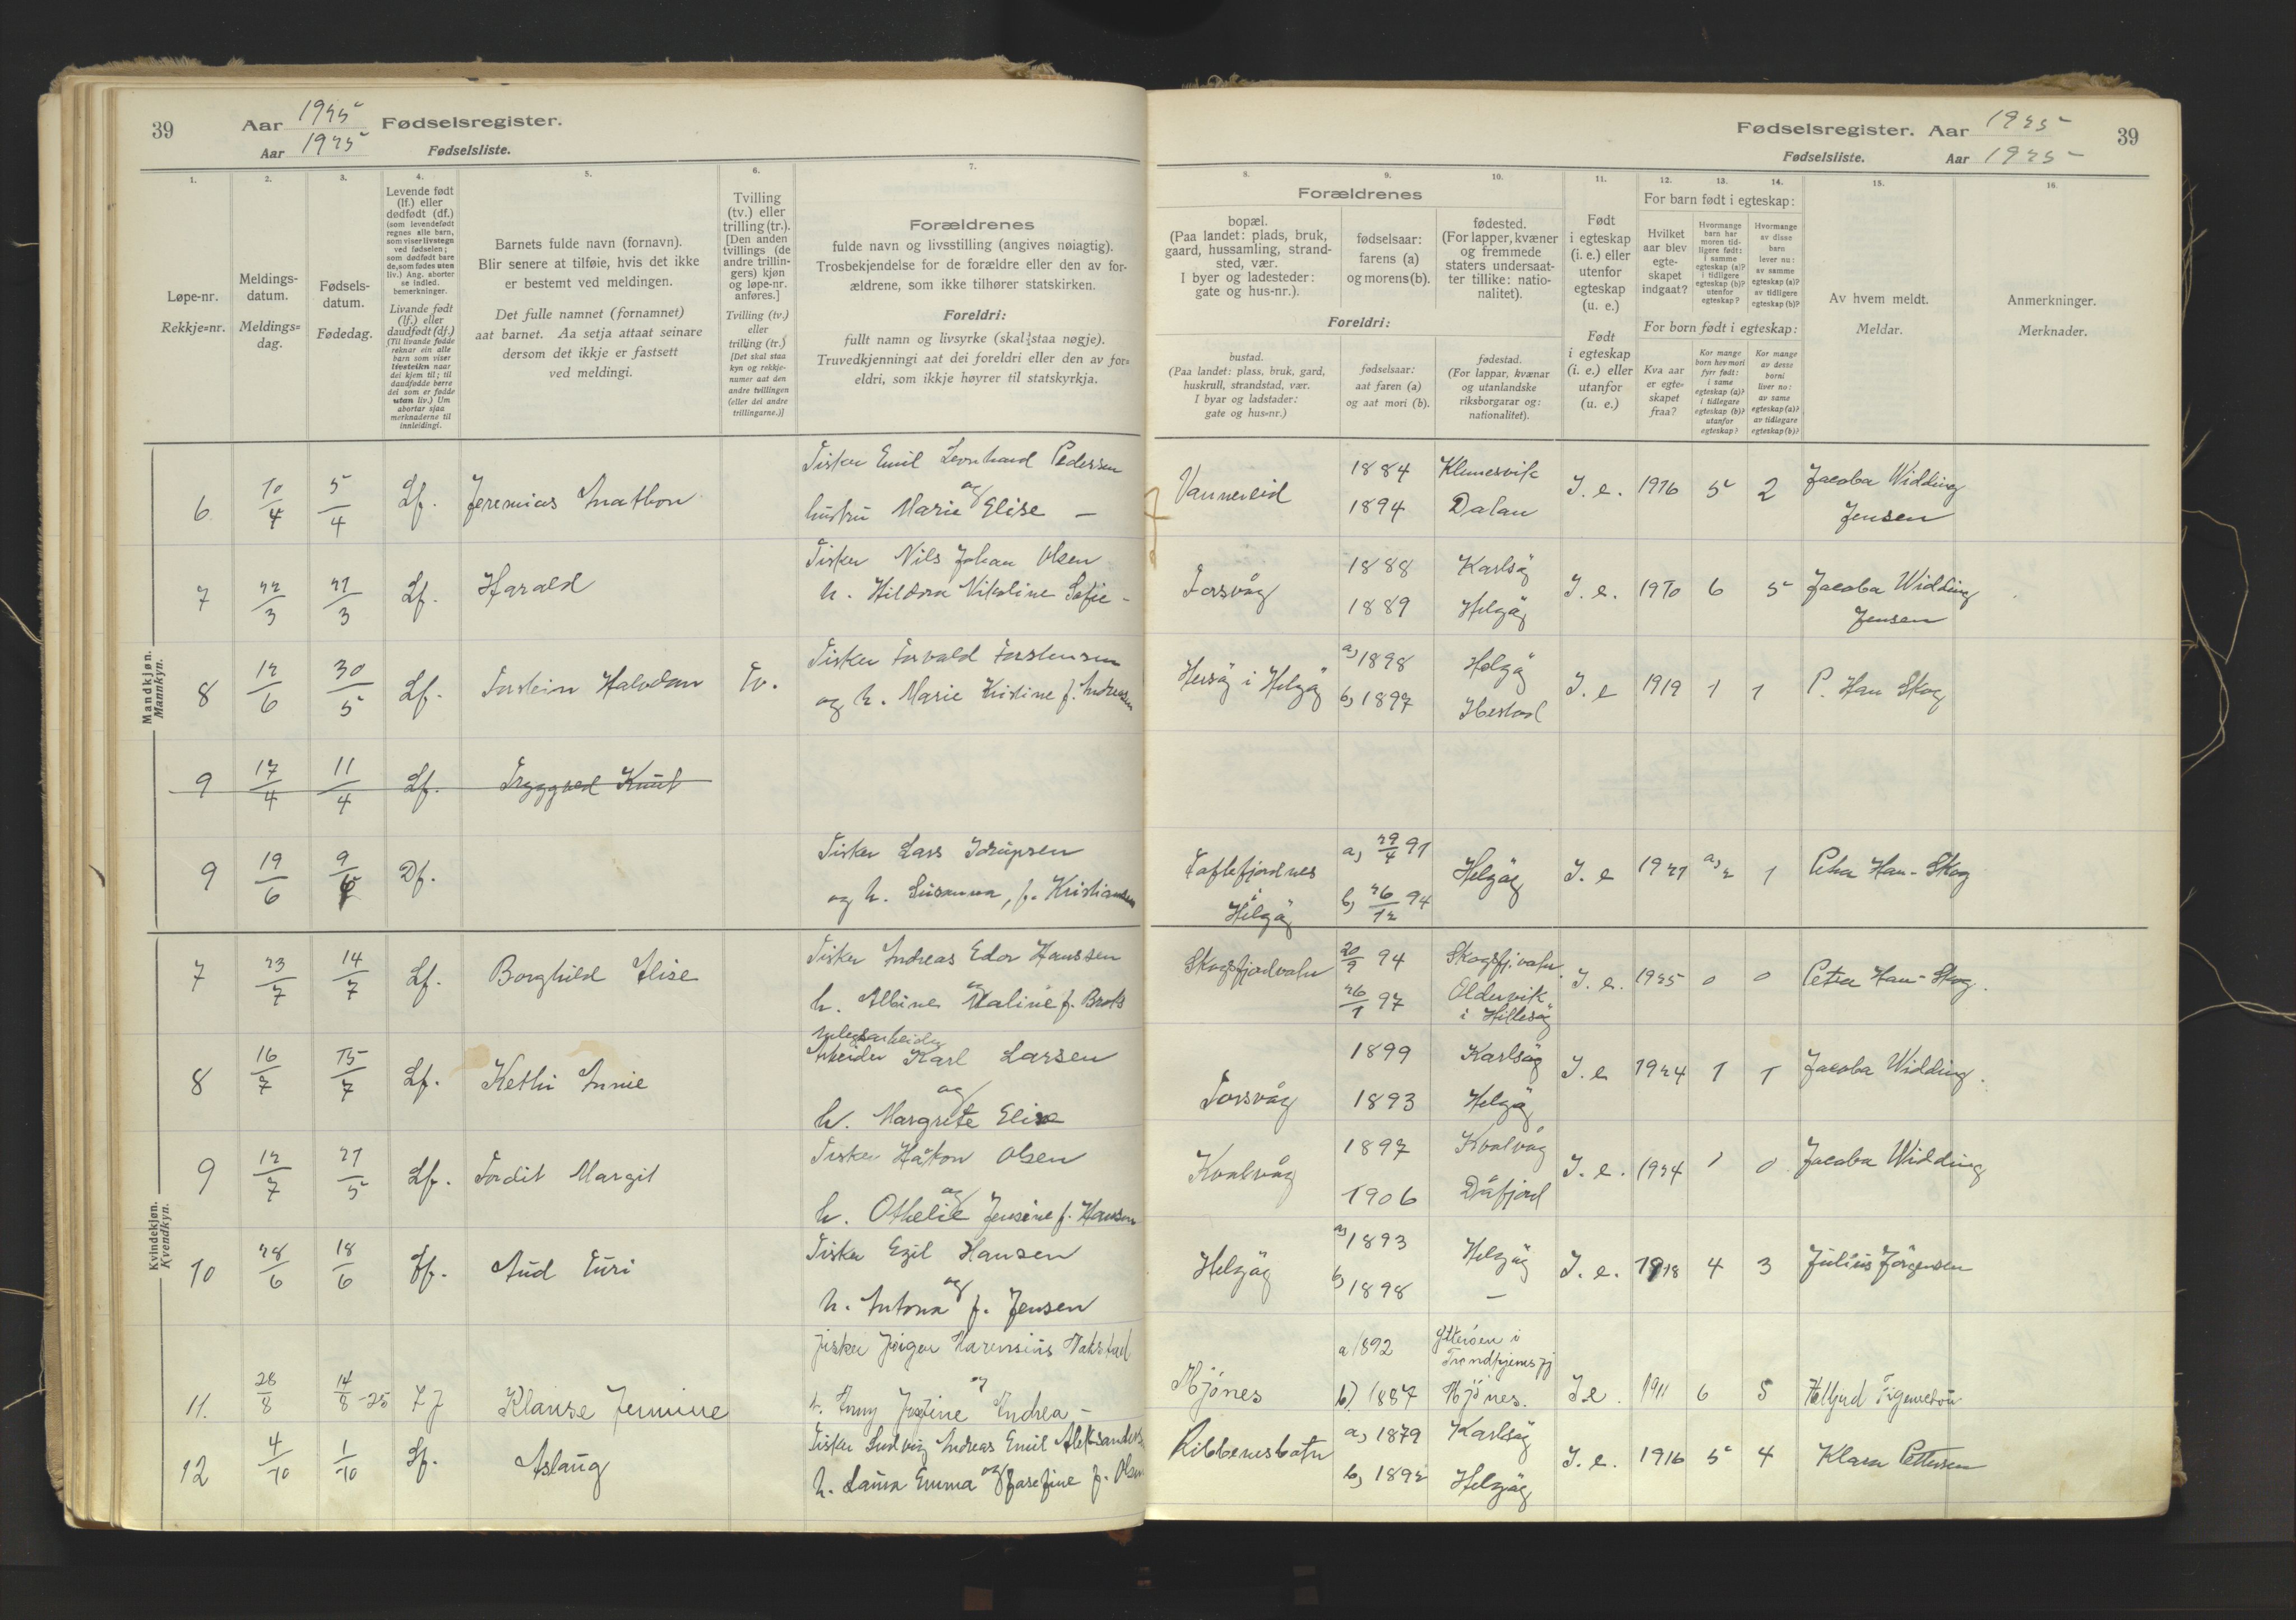 39
Aar 1925
Fødselsregister.
Aar 1925
Fødselsliste.
1.
2.
3.
4.
5.
6.
7.
Løpe-nr.
Rekkje=nr.
Meldings-
datum.
Meldings=
dag.
Fødsels-
datum.
Fødedag.
Levende født
(lf.) eller
dødfødt (df.)
(som levendefødt
regnes alle barn,
som viser livstegn
ved fødselen;
som dødfødt bare
de, som fødes uten
liv.) Ang. aborter
se indled.
bemerkninger.
Livande født
(lf.) eller
daudfødt (df.)
(Til livande fødde
reknar ein alle
barn som viser
livsteikn naar
dei kjem til; til
daudfødde berre
dei som er fødde
utan liv.) Um
abortar sjaa
merknaderne til
innleidingi.
Barnets fulde navn (fornavn).
Blir senere at tilføie, hvis det ikke
er bestemt ved meldingen.
Det fulle namnet (fornamnet)
aat barnet. Aa setja attaat seinare
dersom det ikkje er fastsett
ved meldingi.
Tvilling
(tv.) eller
trilling (tr.).
[Den anden
tvillings (de
andre trillin-
gers) kjøn
og løpe-nr.
anføres.]
Tvilling (tv.)
eller
trilling (tr.)
[Det skal staa
kyn og rekkje-
numer aat den
andre tvillingen
(eller dei andre
trillingarne.)]
Forældrenes
fulde navn og livsstilling (angives nøiagtig).
Trosbekjendelse for de forældre eller den av for-
ældrene, som ikke tilhører statskirken.
Foreldri:
fullt namn og livsyrke (skal staa nøgje).
Truvedkjenningi aat dei foreldri eller den av for=
eldri, som ikkje høyrer til statskyrkja.
Mandkjøn.
Mannkyn.
6 10/4 5/4 Lf. Jeremias Anathon
Fisker Emil Leonhard Pedersen
og
hustru Marie Elise —
7 22/3 21/3 Lf. Harald
Fisker Nils Johan Olsen
h. Hildora Nikoline Sofie -
8 12/6 30/5 Lf. Torstein Halvdan Tv.
Fisker Torvald Torstensen
og h. Marie Kristine f. Andreasen
9 17/4 11/4 Lf. Tryggved Knut
9 19/6 9/6 Df.
Fisker Lars
og h. Susanna, f. Kristiansen
Kvindekjøn.
Kvendkyn.
7 23/7 14/7 Lf. Borghild Elise
Fisker Andreas Edor Hanssen
og
h. Albine Maline f. Broks
8 16/7 15/7 Lf. Kethi Annie
Arbeider Karl Larsen
og
h. Margrete Elise
9 12/7 21/5 Lf. Tordit Margit
Fisker Håkon Olsen
og
h. Othelie Jensine f. Hansen
10 28/6 18/6 Lf. Aud Turi
Fisker Egil Hansen
og
h. Antona f. Jensen
11. 28/8 14/8 -25 Klause Jermine
Fisker Jørgen
og
h. Josefine Andrea -
12 4/10 1/10 Lf. Aslaug
Fisker Ludvig Andreas Emil Aleksandersen
og
h. Laura Emma Josefine f. Olsen
Fødselsregister. Aar 1925
39
Fødselsliste. Aar 1925
8.
9.
10.
11.
12.
13.
14.
15.
16.
Forældrenes
bopæl.
(Paa landet: plads, bruk,
gaard, hussamling, strand-
sted, vær.
I byer og ladesteder:
gate og hus-nr.).
fødselsaar:
farens (a)
og morens (b).
fødested.
(For lapper, kvæner
og fremmede
staters undersaat-
ter tillike: natio-
nalitet).
Foreldri:
bustad.
(Paa landet: plass, bruk, gard,
huskrull, strandstad, vær.
I byar og ladstader:
gate og hus=nr.)
fødselsaar:
aat faren (a)
og aat mori (b).
fødestad.
(For lappar, kvænar
og utanlandske
riksborgarar og:
nationalitet).
Født
i egteskap
(i. e.) eller
utenfor
egteskap
(u. e.)
Født
i egteskap
(i. e.) eller
utanfor
(u. e.)
For barn født i egteskap:
Hvilket
aar blev
egte-
skapet
indgaat?
Hvormange
barn har
moren tid-
ligere født:
i samme
egteskap (a)?
i tidligere
egteskap (b)?
utenfor
egteskap?
Hvormange
av disse
barn
lever nu:
av samme
egteskap (a)?
av tidligere
egteskap (b)?
For born født i egteskap:
Kva aar
er egte=
skapet
fraa?
Kor mange
born hev mori
fyrr født:
i same
egteskap (a)?
i tidlegare
egteskap (b)?
utanfor
egteskap?
Kor mange
av desse
borni
liver no:
av same
egteskap (a)?
av tidlegare
egteskap (b)?
Av hvem meldt.
Meldar.
Anmerkninger.
Merknader.
Vannereid 1884 Klumesvik
1894 Dalan
I. e. 1916 5 2 Jacoba Widding
Jensen
Torsvåg 1888 Karlsøy
1889 Helgøy
I. e. 1910 6 5 Jacoba Widding
Jensen
Hersøy i Helgøy a) 1898 Helgøy
b) 1897 Ibestad
I. e 1919 1 1 P. Han Skog
i
Helgøy
a) 29/4 91
b) 26/12 94
Helgøy I. e 1921 a) 2 1 Petra Han-Skog
Skogsfjordvatn 20/9 94 Skogsfj.vatn
26/1 97 Oldervik
i Hillesøy
I. e. 1925 0 0 Petra Han-Skog.
Torsvåg 1899 Karlsøy
1893 Helgøy
I. e 1924 1 1 Jacoba Widding.
Kvalvåg 1897 Kvalvåg
1906 Dåfjord
I. e. 1924 1 0 Jacoba Widding
Helgøy a) 1893 Helgøy
b) 1898 —
I. e. 1918 4 3 Julius Jørgensen
Mjónes a 1892 Ytterøen i
Trondhjemsfj
b) 1887 Mjónes.
I e. 1911 6 5
Ribbenesbotn a) 1879 Karlsøy
b) 1892 Helgøy
I. e. 1916 5 4 Klara Pettersen